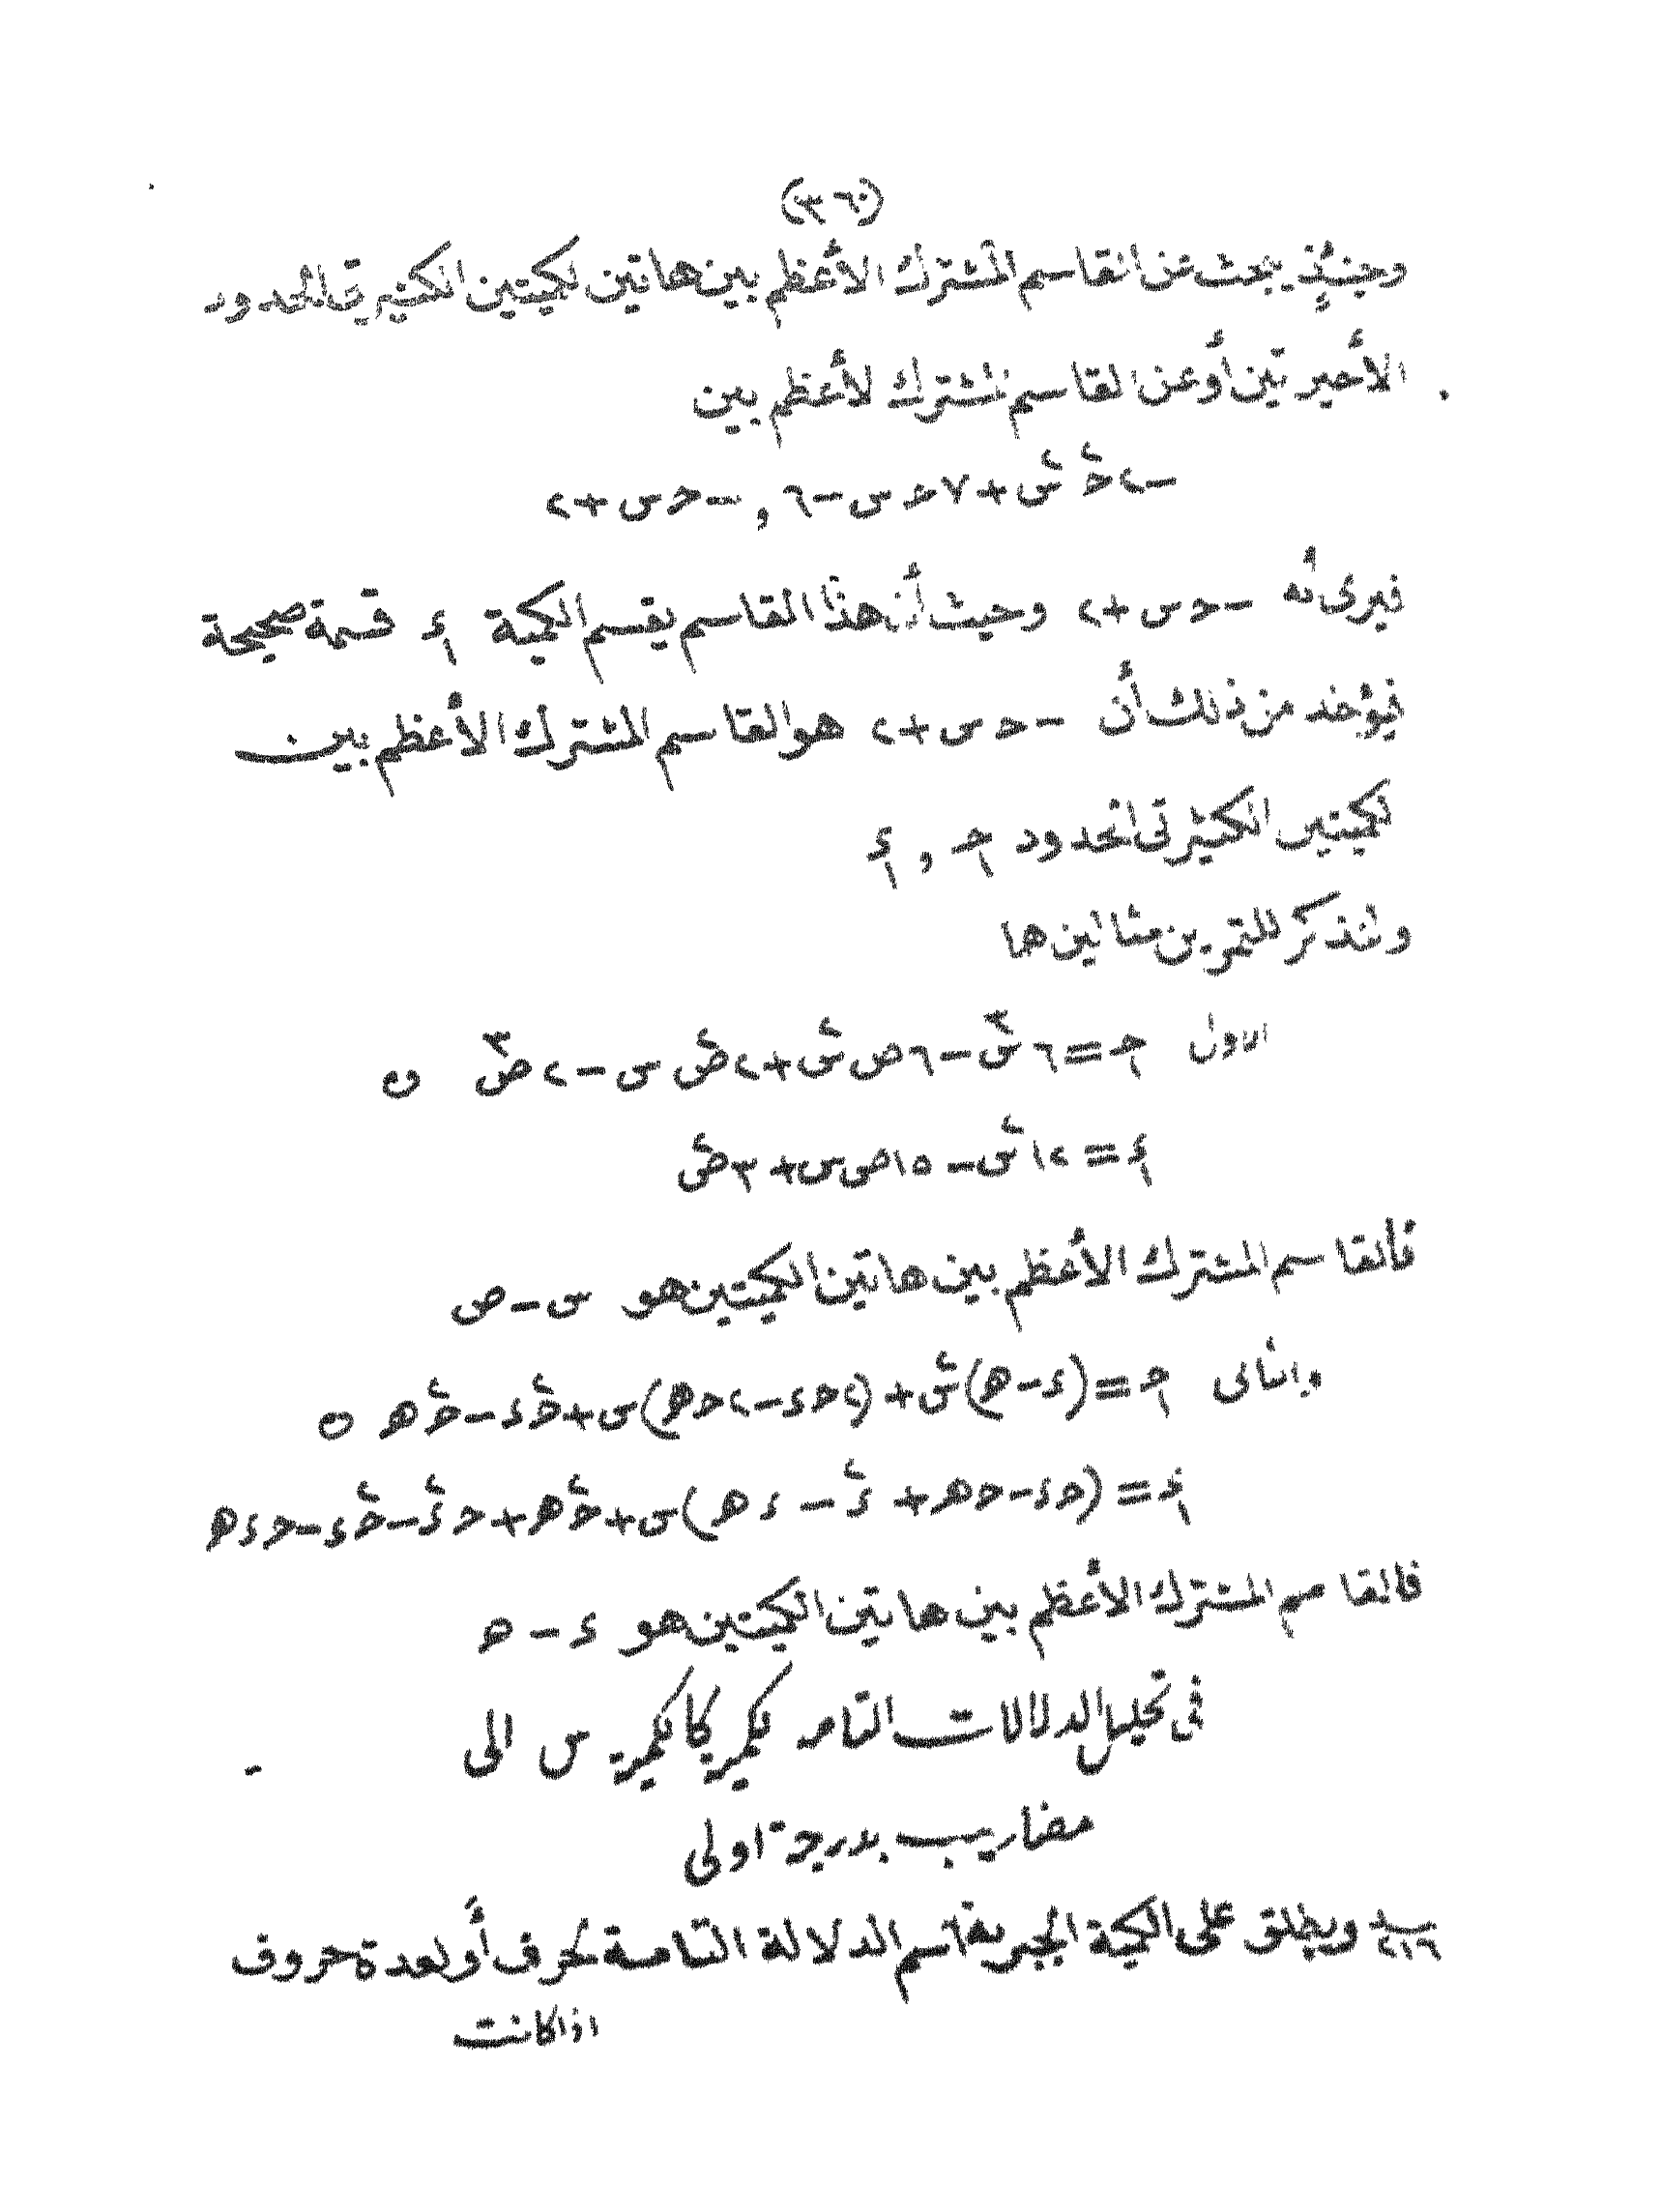 (٣٦٠)
وحينئذ يبحث عن القاسم المشترك الأعظم بين هاتين الكميتين الكثيرتى الحدود
الأخيرتين أو عن القاسم المشترك لأعظم بين
-٢ح٢س٢+٧حس-٦ , -حس+٢
فيرى أنه -حس+٢ وحيث أن هذا القاسم يقسم الكمية ء١ قسمة صحيحة
فيؤخذ من ذلك أن -حس+٢ هو القاسم المشترك الأعظم بين
لكميتين الكثيرتى الحدود ح١ , ء١
ولنذكر للتمرين مثالين هما
الاول ح١=٦س٣-٦ص س٢+٢ص٢ س-٢ص٣ ن
ء١=١٢س٢-١٥ص س+٣ص٢
فالقاسم المشترك الأعظم بين هاتين الكميتين هو س-ص
والثانى ح١=(ء-ھ)س٢+(٢حء-٢حھ)س+ح٢ء-ح٢ھ ن
ء١=(حء-حھ+ء٢-ءھ)س+ح٢ھ+حء٢-ح٢ء-حءھ
فالقاسم المشترك الأعظم بين هاتين الكميتين هو ء-ھ
فى تحليل الدلالات التامه لكميه كالكميه س الى
مضاريب بدرجة اولى
٢١٦ ويطلق على الكمية الجبرية اسم الدلالة التامة لحرف أو لعدة حروف
اذا كانت